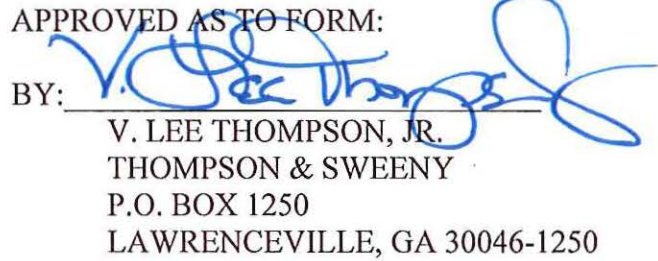 APPROVED AS TO FORM:
V. Lee Thompson, Jr.
BY:
V. LEE THOMPSON, JR.
THOMPSON & SWEENY
P.O. BOX 1250
LAWRENCEVILLE, GA 30046-1250